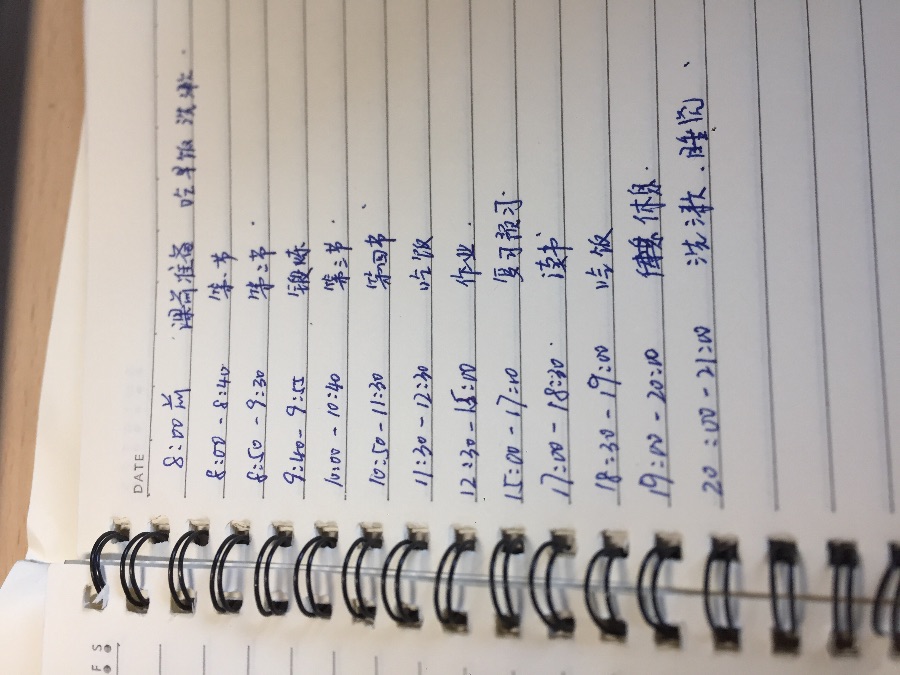 DATE
8:00前 课前准备 吃早饭 洗漱.
8:00-8:40 第一节
8:50-9:30 第二节.
9:40-9:55 锻炼
10:00-10:40 第三节.
10:50-11:30 第四节
11:30-12:30 吃饭
12:30-15:00 作业.
15:00-17:00 复习预习.
17:00-18:30. 读书
18:30-19:00 吃饭
19:00-20:00 休息.
20:00-21:00 洗漱.睡觉
S
F